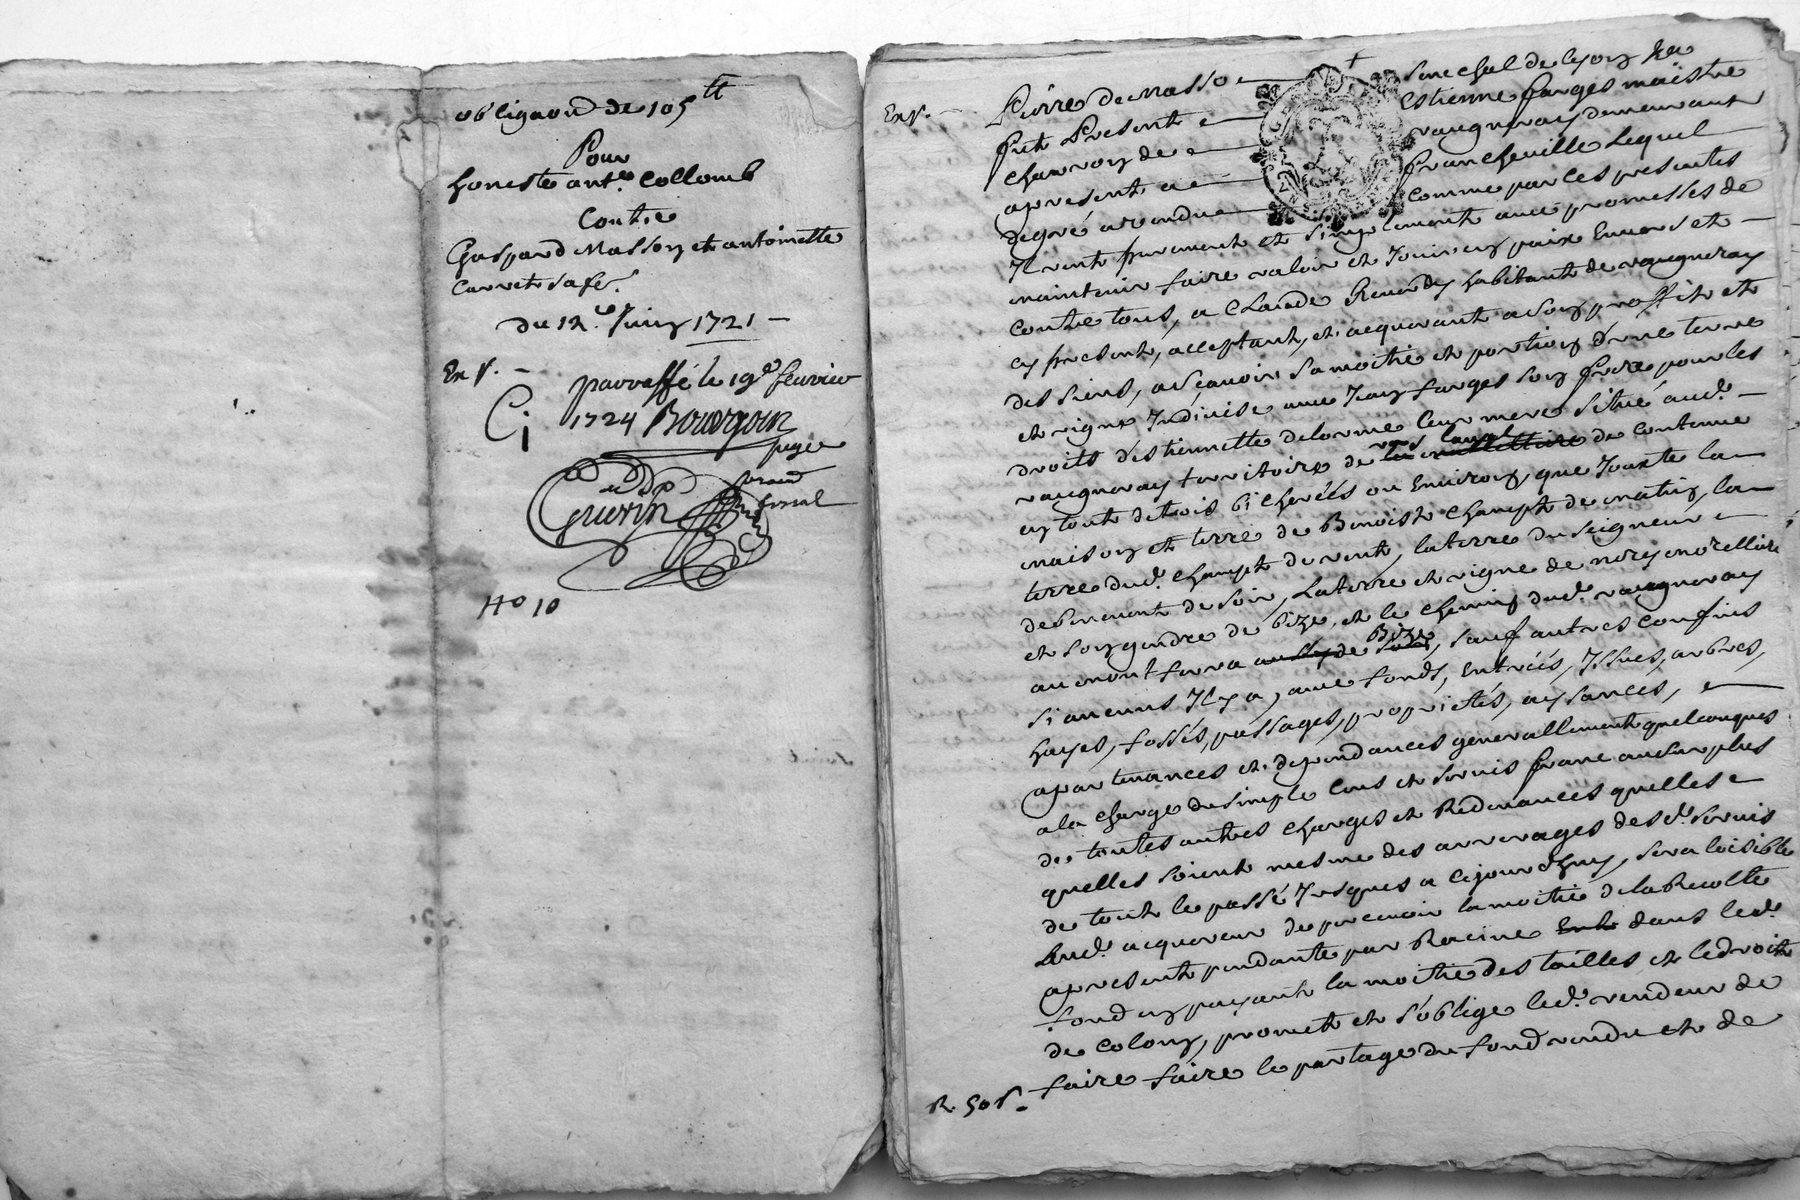 obligaon de 105 tt
Pour
honeste ant.e Collomb
Contre
Gaspard Masson et antoinette
Carret sa fe.
du 12.e Juin 1721 —
Ex V. —
C i parraffé le 19e feuvrier
1724 Bourgoin
juge
Guerin
No 10
Exp. — Pierre de Masso senechal de lyon
fut Present Estienne farges maistre
charron de vaugneray demeurant
apresent a francheville Lequel
degré a vendu comme par ces presentes
Il vent purement et simplement auec promesses de
maintenir faire valoir et Jouir en paix Enuers et —
contre tous, a Claude habitant de vaugneray
cy present, acceptant, et acquerant a son proffit et
des siens, asçauoir sa moitié et portion d'une terre
et vigne Indivise auec Jean farges son frere pour les
droits d'estiennette delorme leur mere située aud.
vaugneray territoire de de contenue
en tout de trois bicherées ou Enuiron, que Jouxte la
maison et terre de Benoist champt de matin, la
terre dud. champt de vent, la terre du seigneur
de soir, La terre et vigne de morellire
et son gendre de bize, et le chemin dud. vaugneray
au mont Bize, sauf autres confins
si aucuns Il y a, auec fonds, Entrées, Issues, arbres,
hayes, fossés, passages, proprietés, aysances,
apartenances et dependances generallement quelconques
a la charge du simple Cens et servis franc au surplus
de toutes autres charges et Redeuances quelles
quelles soient mesme des arrerages desd. servis
de tout le passé Jusques a cejourdhuy, sera loisible
Aud. acquereur de perceuoir la moitié de la Recolte
apresent pendante par Racine dans led.
fond en payant la moitie des tailles et le droit
de colon, promet et s'oblige led. vendeur de
faire faire le partage du fond vendu et de
R. 50 s.